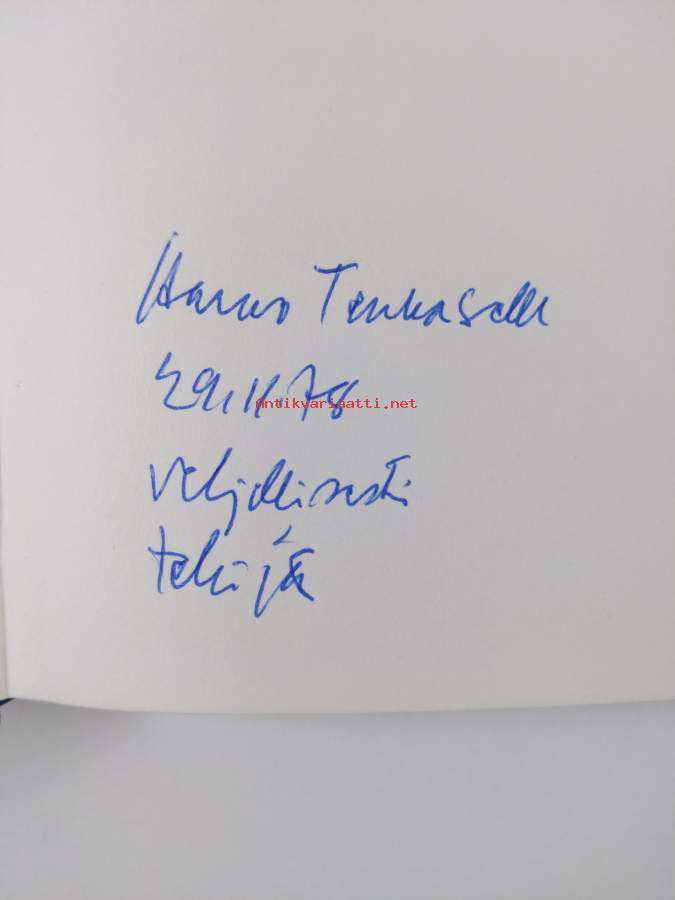 Hanno Tenkaselle
29.11.78
Antikvariaatti.net
veljellisesti
tekijä